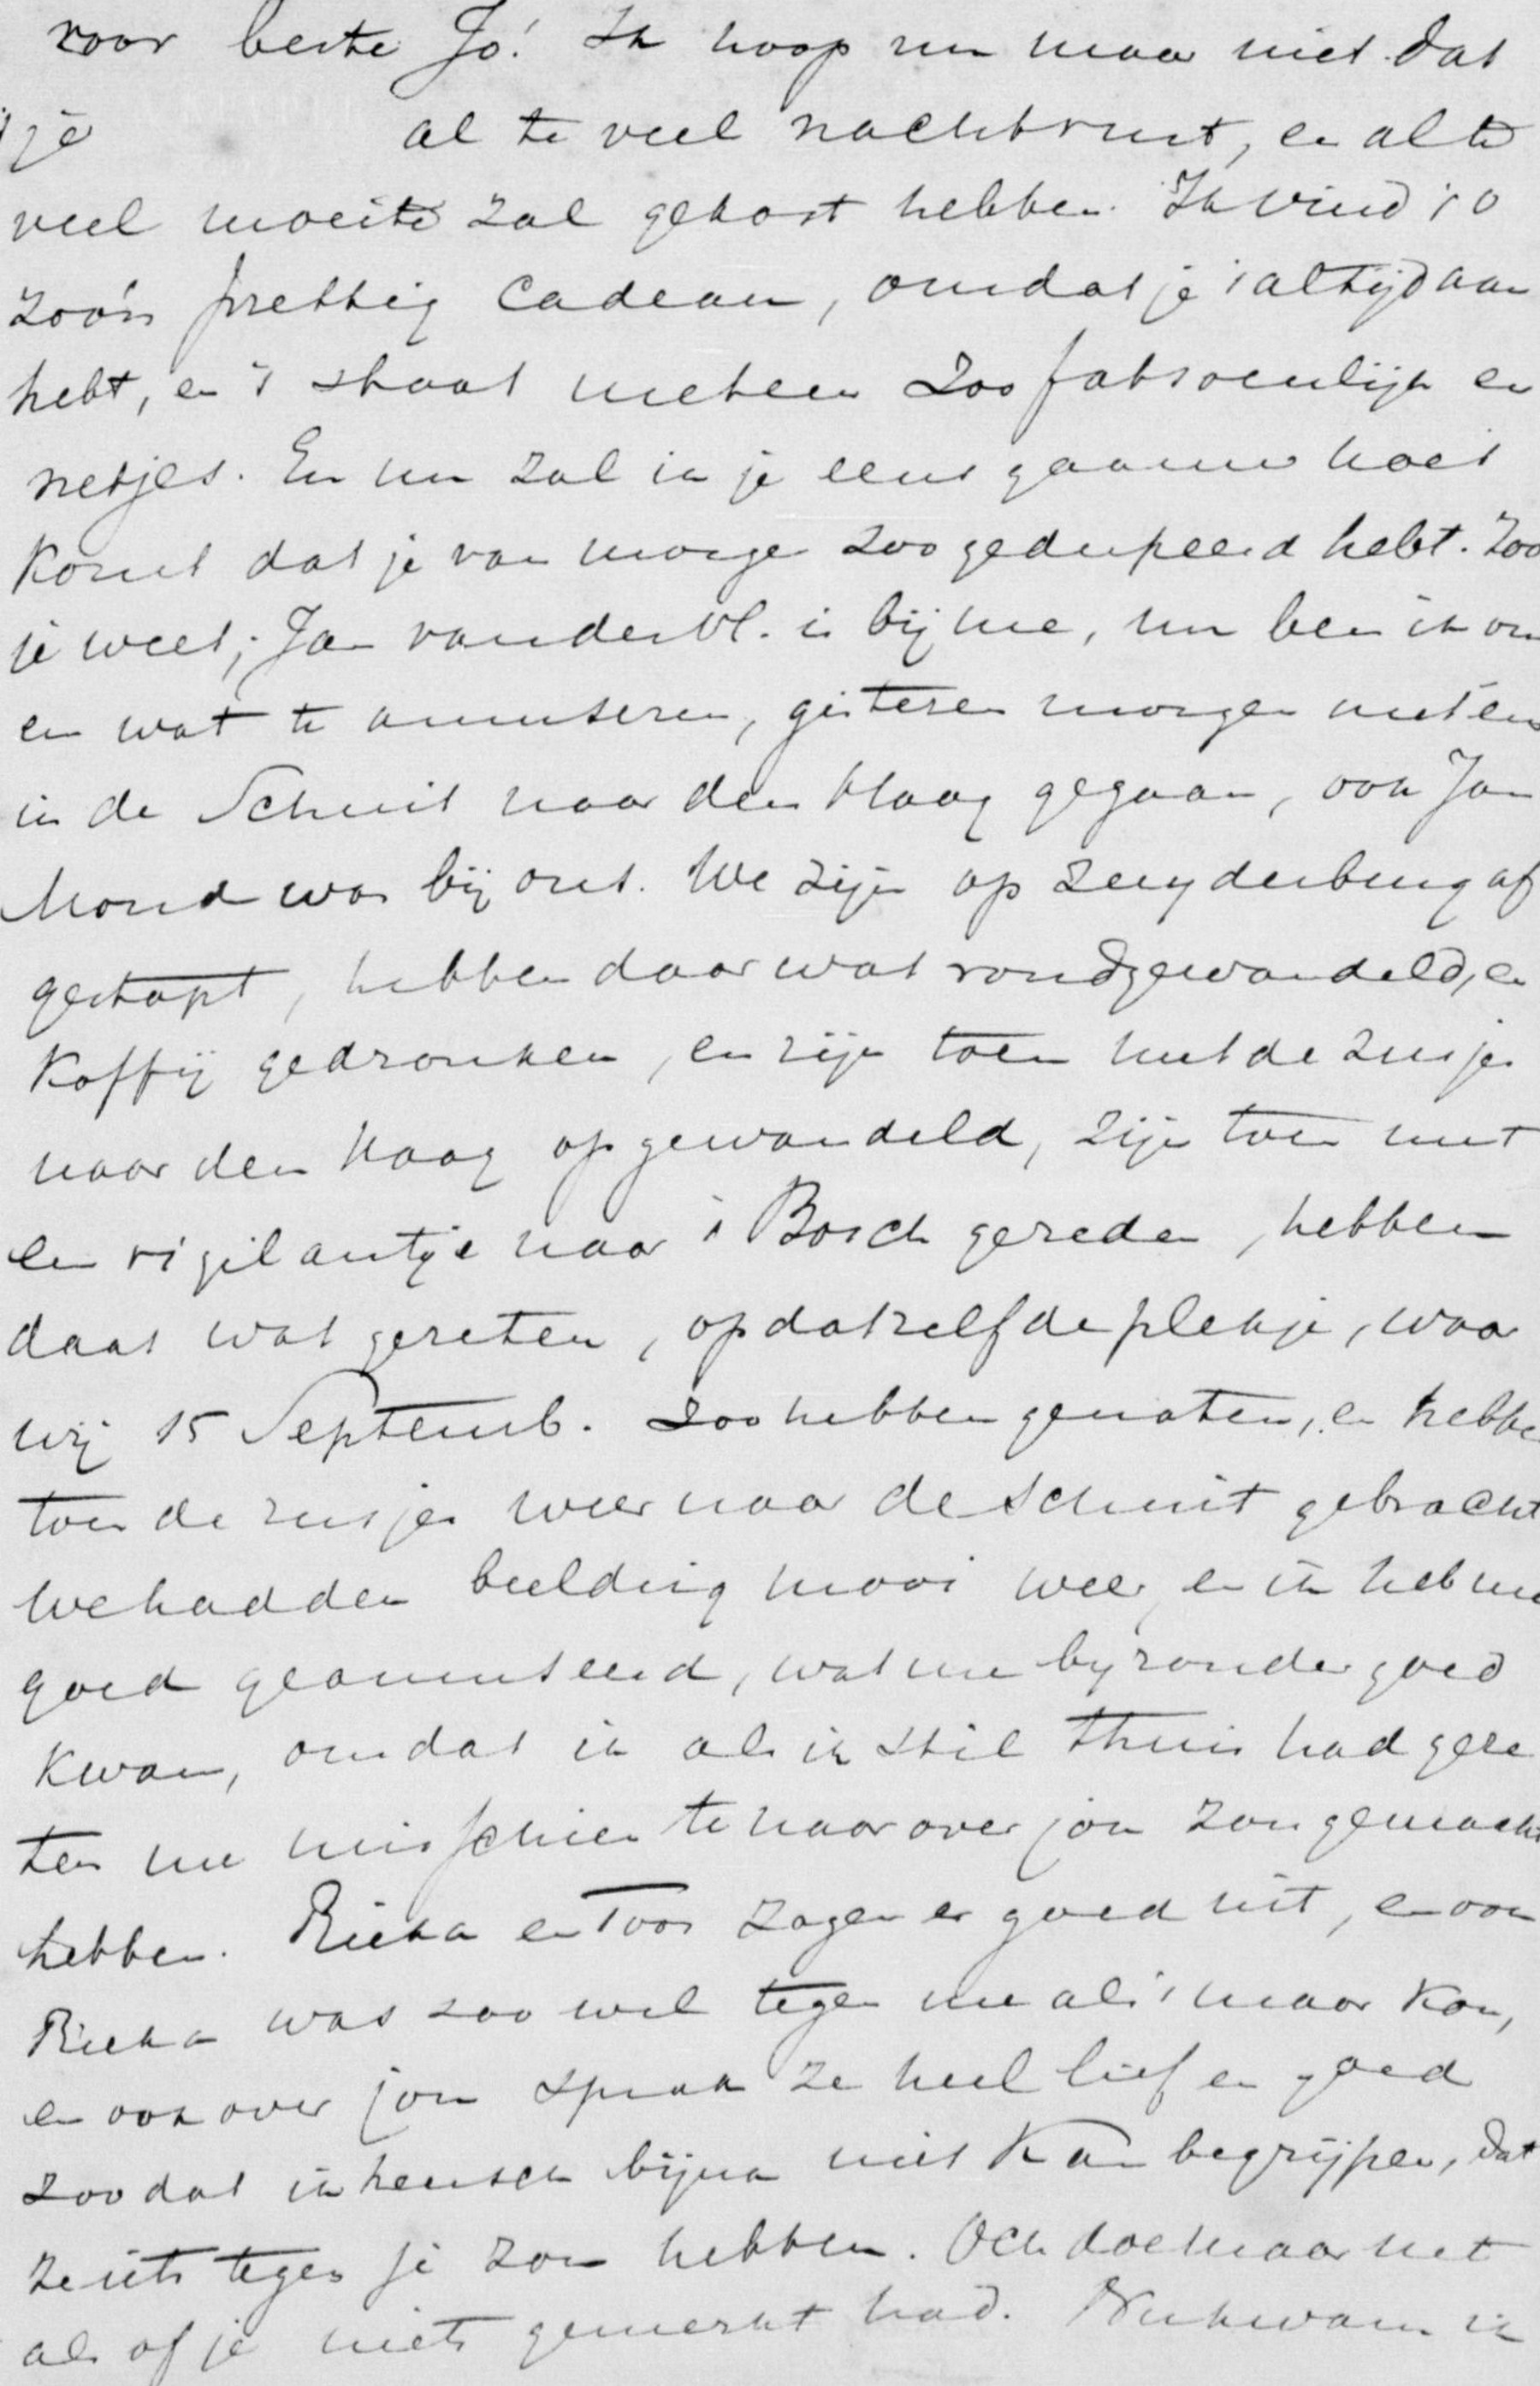 voor beste Jo! Ik hoop nu maar niet dat
je al te veel nachtrust, en al te
veel moeite zal gekost hebben. Ik vind 't o
zoo'n prettig cadeau, omdat je 't altijd aan
hebt, en 't staat meteen zoo fatsoenlijk en
netjes. En nu zal ik je eens gaauw hoe 't
komt dat je van morge zoo gedupeerd hebt. Zoo
je weet, Jan van der Vl. is bij me, nu ben ik om
en wat te amuseren, gisteren morgen met en
in de Schuit naar den Haag gegaan, ook Jan
Mond was bij ons. We zijn op Zuyderburg af
gestapt, hebben daar wat rondgewandeld, en
koffij gedronken, en zijn toen met de zusjes
naar den Haag op gewandeld, zijn toen met
en vigilantje naar 't Bosch gereden, hebben
daar wat gezeten, op dat zelfde plekje, waar
wij 15 Septemb. zoo hebben genoten, en hebben
toen de zusjes weer naar de schuit gebracht
We hadden beeldig mooi weer, en ik heb me
goed geamuseerd, wat me byzonder goed
kwam, omdat ik als ik stil thuis had geze
ten me misschien te naar over jou zou gemaakt
hebben. Rieka en Toos zagen er goed uit, en ook
Rieka was zoo wel tegen me als 't maar kon,
en ook over jou sprak ze heel lief en goed
zoodat ik heusch bijna niet kan begrijpen, dat
ze iets tegen je zou hebben. Och doe maar net
als of je niets gemerkt had. Nu kwam ik